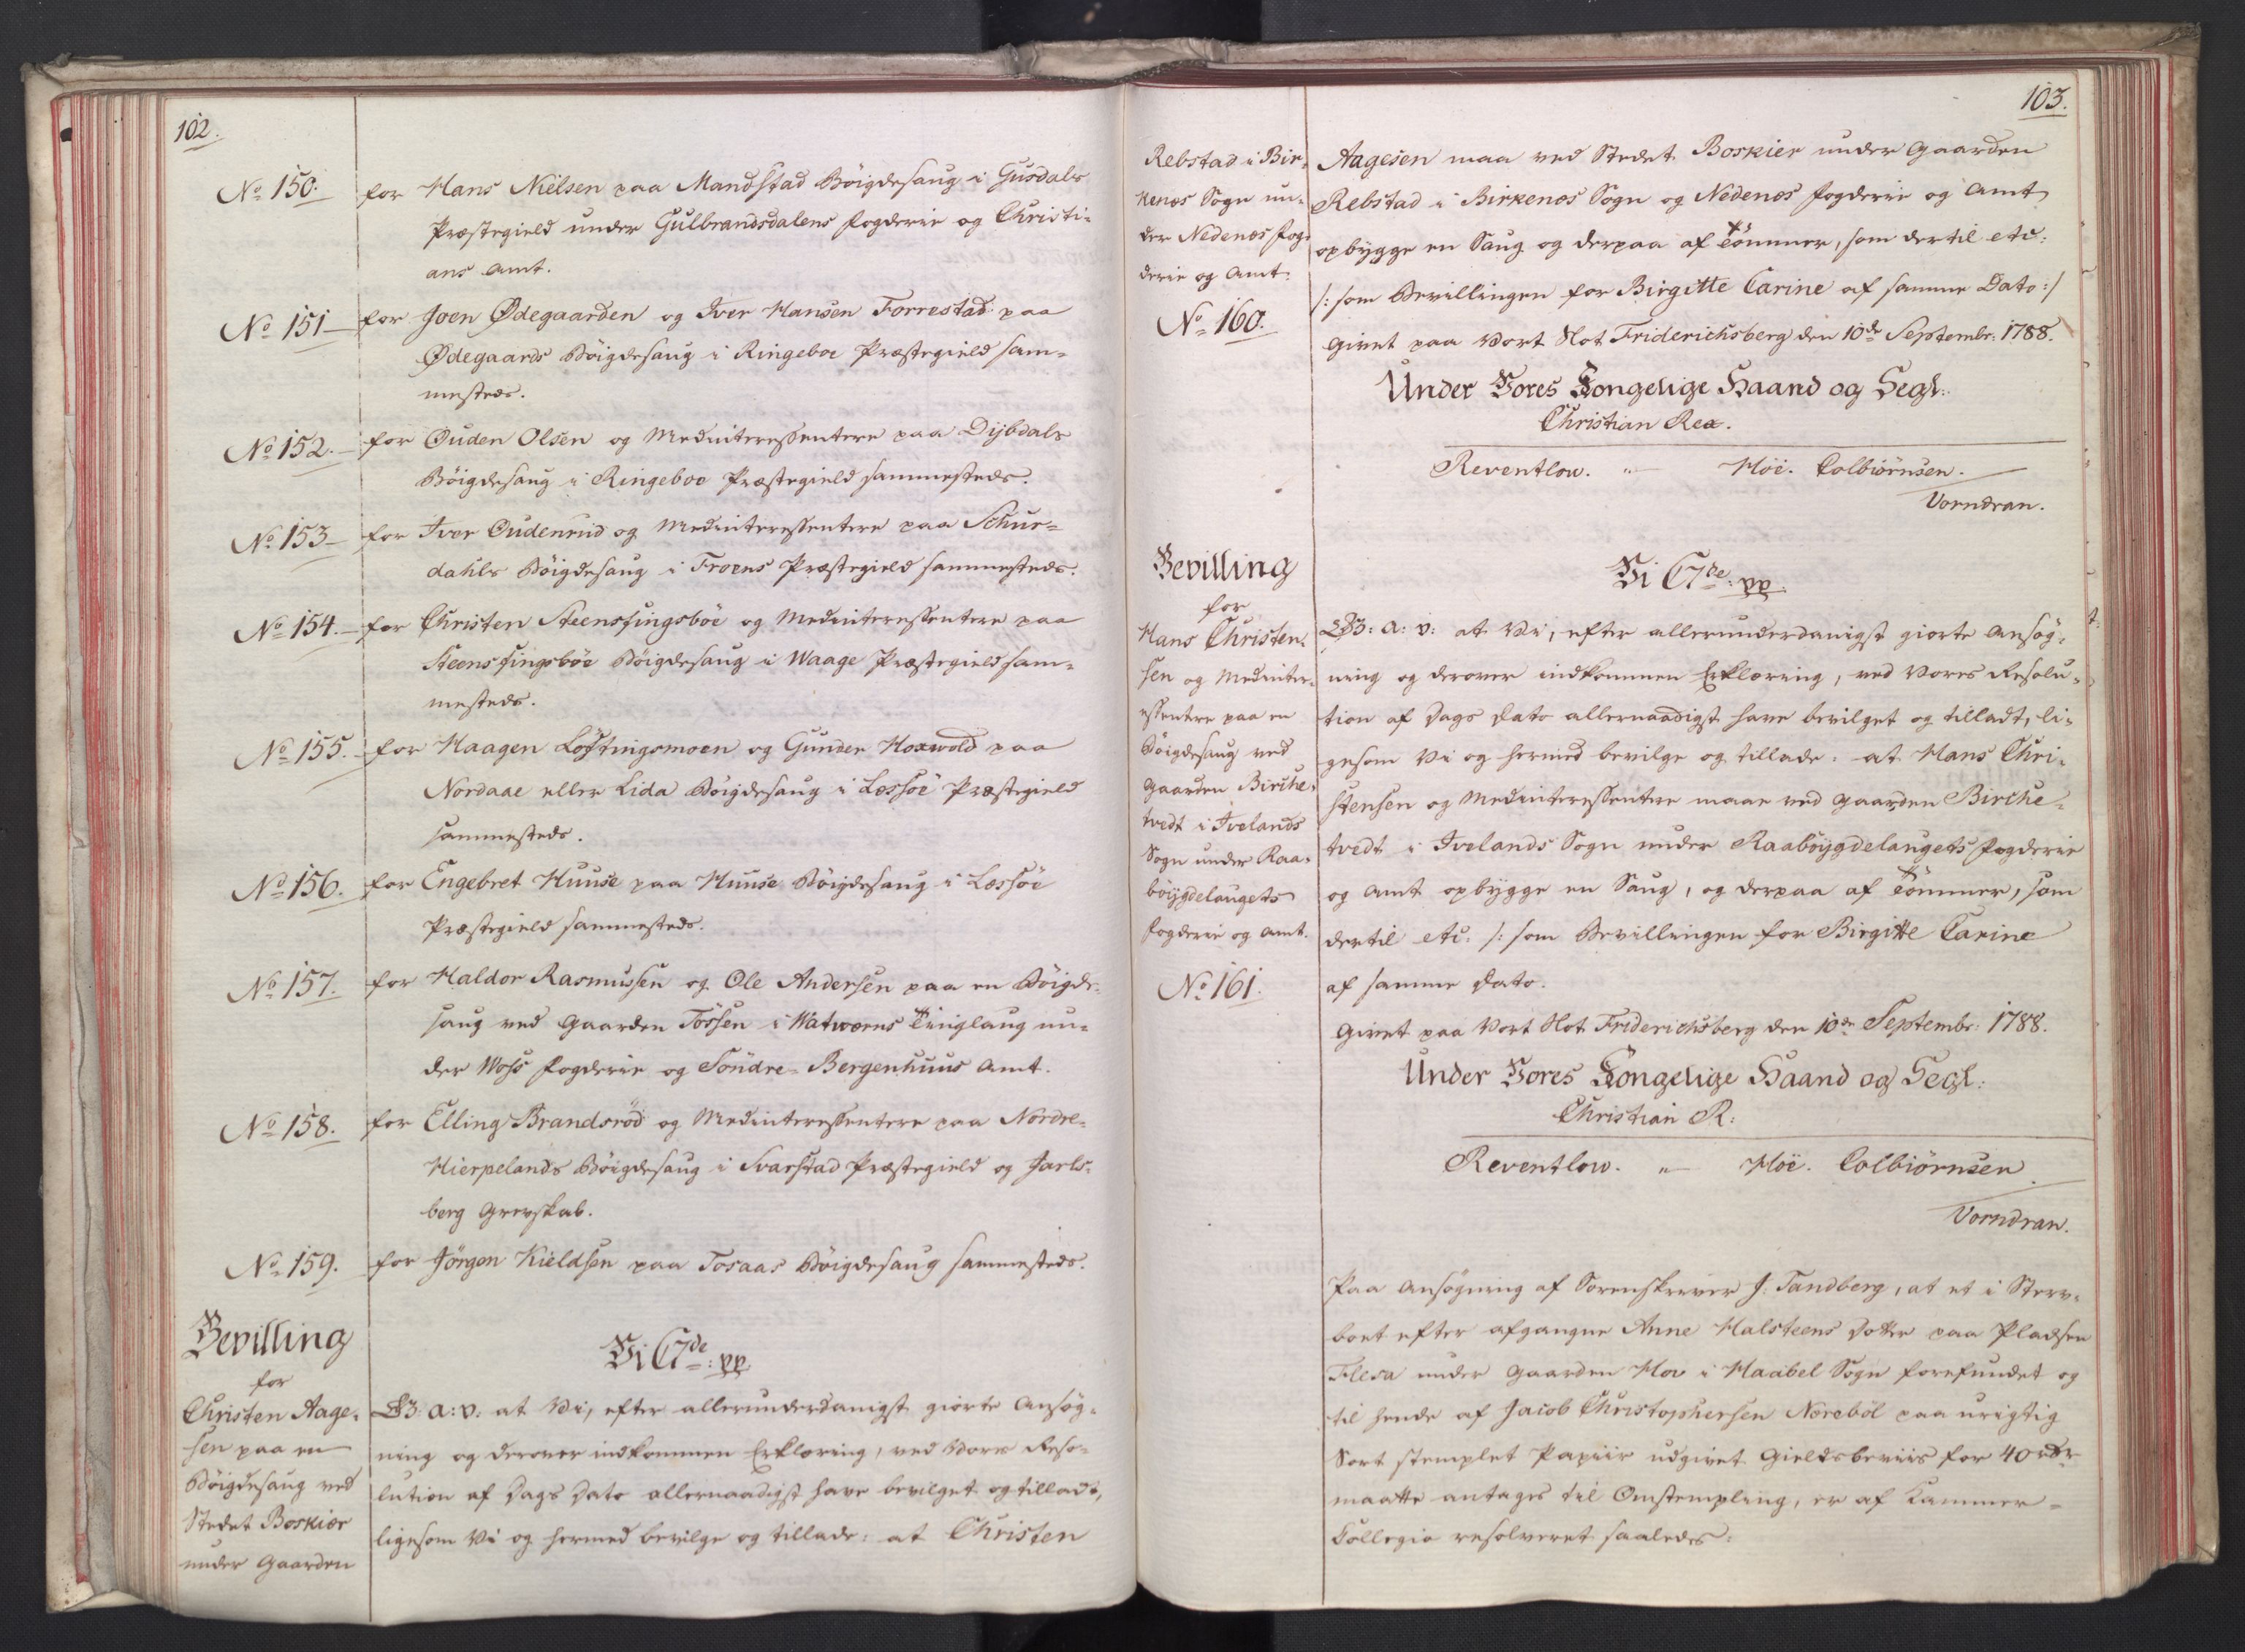 102.
No 150. for Hans Nielsen paa Mandstad Böigdesaug i Gusdals
Præstegield under Gulbrandsdalens Fogderie og Christi=
ans Amt.
No 151 for Joen Ødegaarden og Iver Hansen Forrestad paa
Ødegaards Böigdesaug i Ringeboe Præstegield sam=
mesteds.
No 152. for Ouden Olsen og Medinteressentere paa Dijbdals
Böigdesaug i Ringeboe Præstegield sammesteds.
No 153 for Iver Oudenrud og Medinteressentere paa Schur=
dahls Böigdesaug i Froens Præstegield sammesteds.
No 154. for Christen Steensfingsböe og Medinteressentere paa
Steensfingsböe Böigdesaug i Waage Præstegield sam=
mesteds.
No 155. for Haagen Löftingsmoen og Gunder Hoxwold paa
Nordaae eller Lida Böigdesaug i Lessöe Præstegield
sammesteds.
No 156. for Engebret Huuse paa Huuse Böigdesaug i Lessöe
Præstegield sammesteds.
No 157. for Haldor Rasmussen og Ole Andersen paa en Böigde=
saug ved Gaarden Tössen i Watwærns Tinglaug un=
der Woss Fogderie og Söndre=Bergenhuus Amt.
No 158. for Elling Brandsröd og Medinteressentere paa Nordre=
Hierpelands Böigdesaug i Svarstad Præstegield og Jarls=
berg Grevskab.
No 159. for Jörgen Kieldsen paa Tosaas Böigdesaug sammesteds.
Bevilling
for
Christen Aage=
sen paa en
Böigdesaug ved
Stedet Boskier
under Gaarden
Vi C7de: pp.
G: A: V: at Vi, efter allerunderdanigst giorte Ansög=
ning og derover indkommen Erklæring, ved Vores Reso=
lution af Dags Dato allernaadigst have bevilget og tilladt,
ligesom Vi og hermed bevilge og tillade: at Christen
103.
Rebstad i Bir=
kenæs Sogn un=
der Nedenæs Fog=
derie og Amt.
No 160.
Aagesen maa ved Stedet Boskier under Gaarden
Rebstad i Birkenæs Sogn og Nedenæs Fogderie og Amt
opbygge en Saug og derpaa af Tömmer, som dertil etc:
/: som Bevillingen for Birgitte Carine af samme Dato :/
Givet paa Vort Slot Friderichsberg den 10de Septembr: 1788.
Under Vores Kongelige Haand og Segl.
Christian Rex.
Reventlow. " Höe. Colbiörnsen.
Vorndran.
Bevilling
for
Hans Christen=
sen og Medinter=
essentere paa en
Böigdesaug ved
Gaarden Birche=
tvedt i Ivelands
Sogn under Raa=
böygdelaugets
Fogderie og Amt.
No 161.
Vi C7de: pp.
G: A: V: at Vi, efter allerunderdanigst giorte Ansög=
ning og derover indkommen Erklæring, ved Vores Resolu=
tion af Dags Dato allernaadigst have bevilget og tilladt, li=
gesom Vi og hermed bevilge og tillade: at Hans Chri=
stensen og Medinteressentere maae ved Gaarden Birche=
tvedt i Ivelands Sogn under Raaböygdelaugets Fogderie
og Amt opbygge en Saug, og derpaa af Tömmer, som
dertil etc. /: som Bevillingen for Birgitte Carine
af samme Dato.
Givet paa Vort Slot Friderichsberg den 10de Septembr: 1788.
Under Vores Kongelige Haand og Segl:
Christian R:
Reventlow. " Höe. Colbiörnsen.
Vorndran.
Paa Ansögning af Sorenskriver J. Tandberg, at et i Sterv=
boet efter afgangne Anne Halsteens Dotter paa Pladsen
Flesa under Gaarden Mov i Haabel Sogn forefundet og
til hende af Jacob Christophersen Noreböl paa urigtig
Sort stemplet Papiir udgivet Gieldsbeviis for 40 rdr
maatte antages til Omstempling, er af Kammer=
Collegio resolveret saaledes: